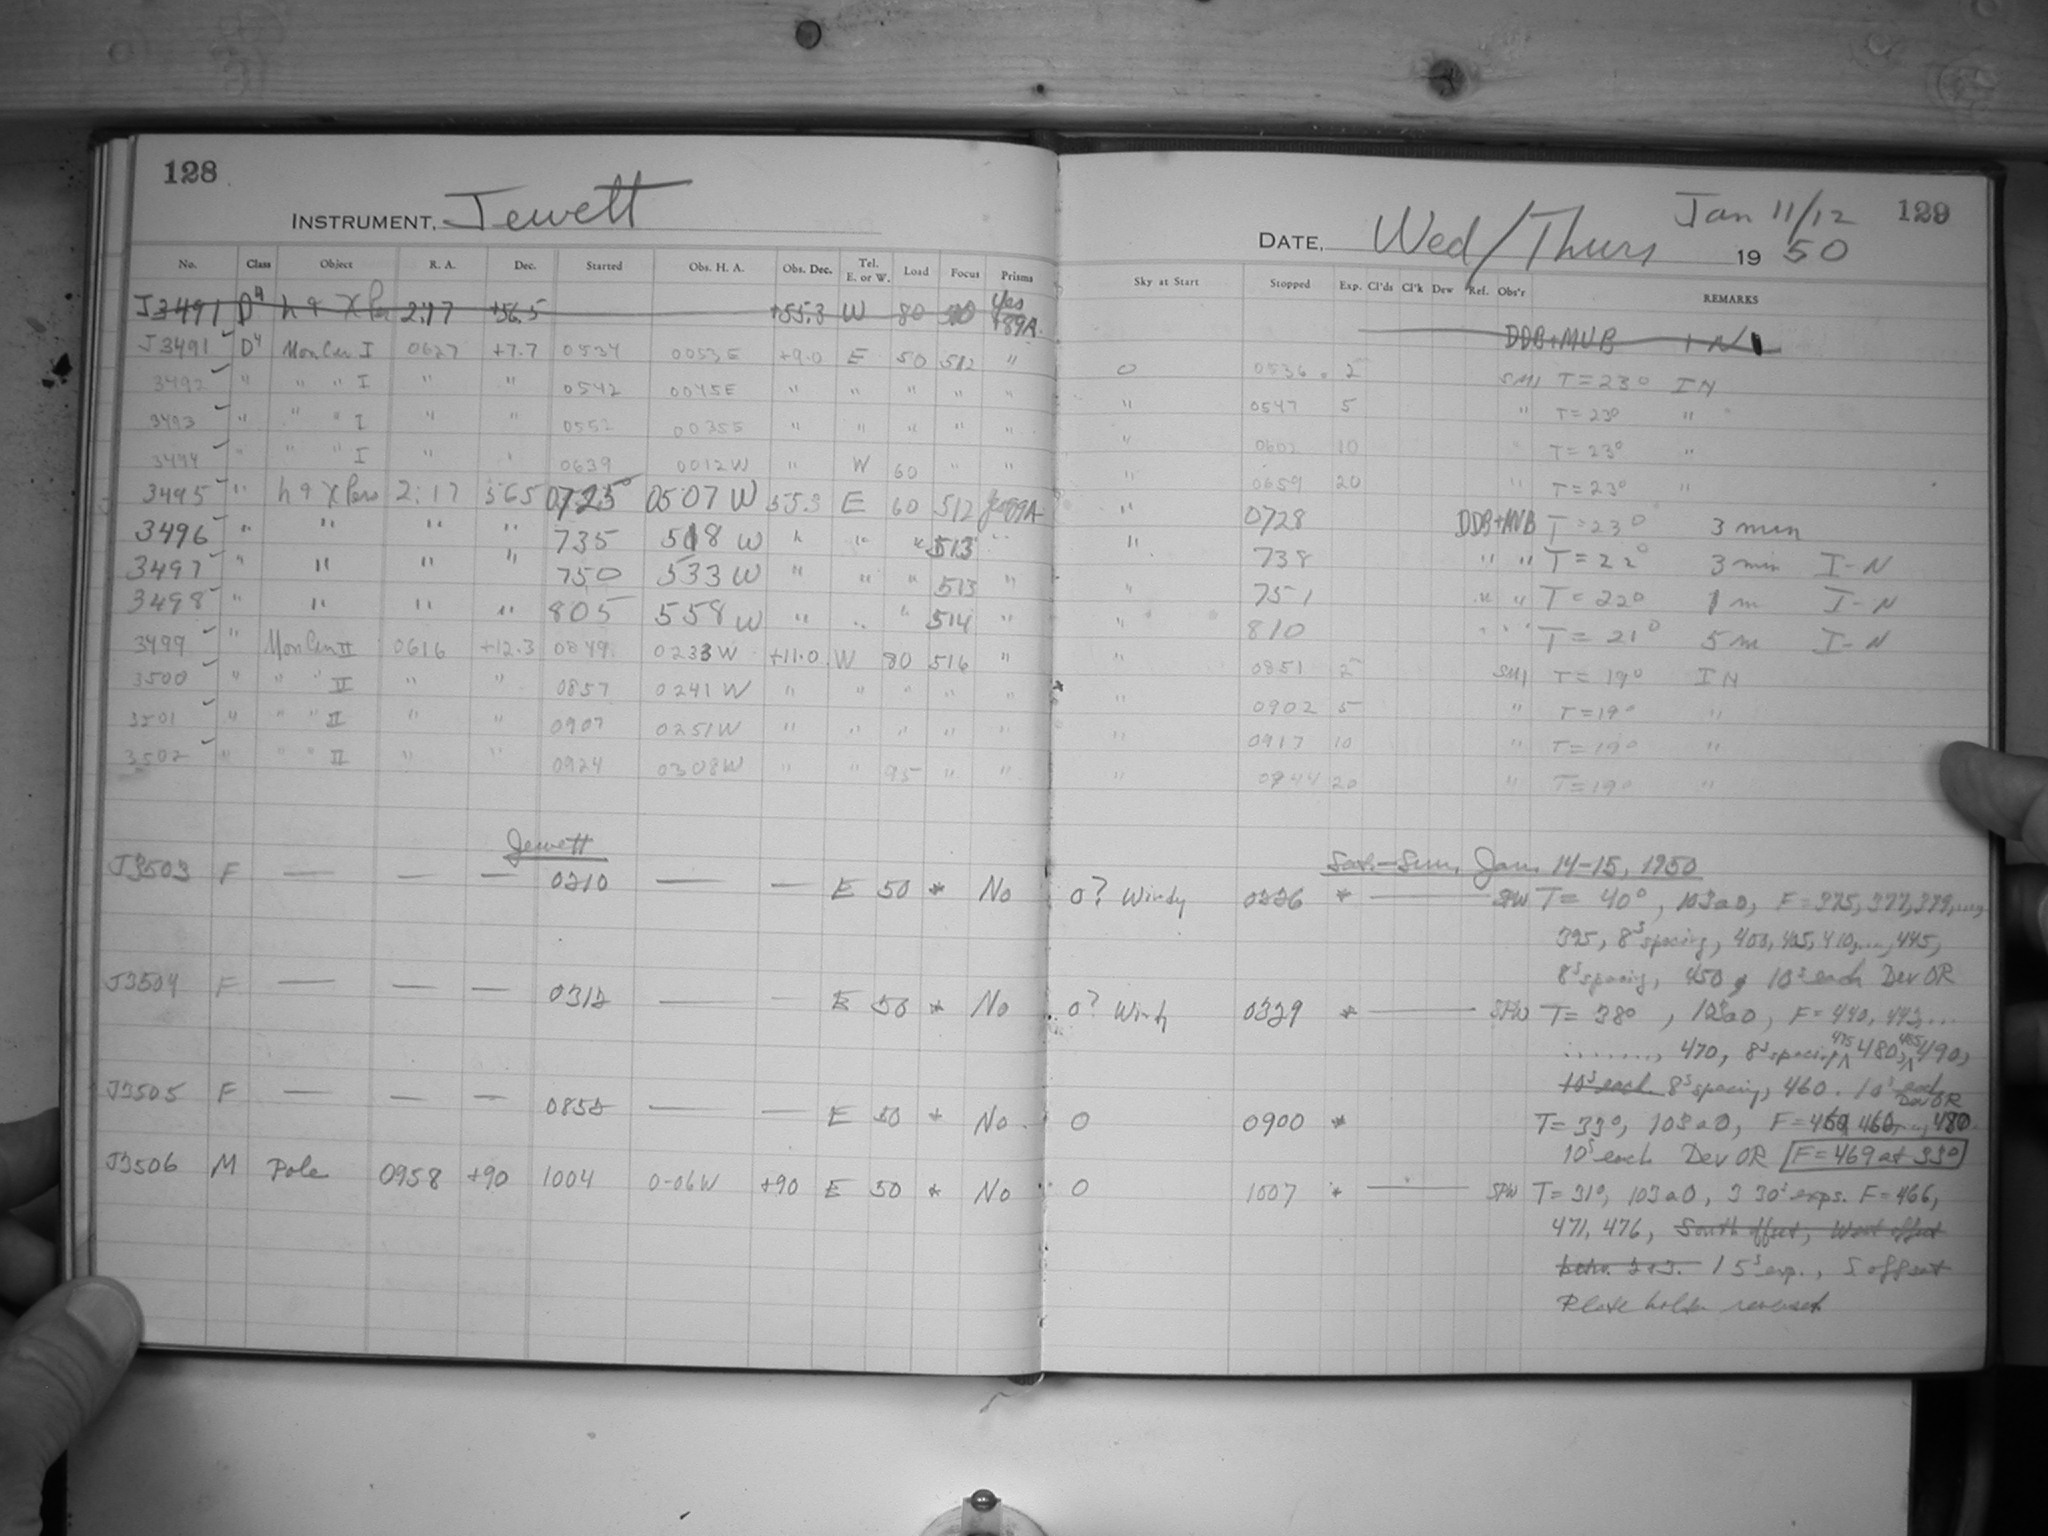 128
INSTRUMENT, Jewett
No. Class Object R. A. Dec. Started Obs. H. A. Obs. Dec. Tel. E. or W. Load Focus Prisms
J3491 D4 h & χ Per 2:17 +56.5 +55.3 W 80 Yes +89A
J3491 D4 Mon Cen I 0627 +7.7 0534 0053E +9.0 E 50 512 "
3492 " " " I " " 0542 0045E " " " " "
3493 " " " I " " 0552 0035E " " " " "
3494 " " " I " " 0639 0012W " W 60 " "
3495 " h & χ Pers 2:17 565 0725 0507 W 55.3 E 60 512 Yes 89A
3496 " " " " 735 518 W " " " 513 "
3497 " " " " 750 533 W " " " 513 "
3498 " " " " 805 558 W " " " 514 "
3499 " Mon Cen II 0616 +12.3 0849 0233W +11.0 W 80 516 "
3500 " " " II " " 0857 0241W " " " " "
3501 " " " II " " 0907 0251W " " " " "
3502 " " " II " " 0924 0308W " " 95 " "
Jewett
J3503 F — — — 0210 — — E 50 * No
J3504 F — — — 0312 — — E 50 * No
J3505 F — — — 0852 — — E 50 * No.
J3506 M Pole 0958 +90 1004 0-06W +90 E 50 * No
Jan 11/12 129
DATE, Wed/Thurs 19 50
Sky at Start Stopped Exp. Cl'ds Cl'k Dew Ref. Obs'r REMARKS
DDB+MVB I N
0 0536 2 SMJ T=23° IN
" 0547 5 " T=23° "
" 0602 10 " T=23° "
" 0659 20 " T=23° "
" 0728 DDB+MVB T=23° 3 min
" 738 " " T=22° 3 min I-N
" 751 " " T=22° 1 m I-N
" 810 " " T=21° 5 m I-N
" 0851 2 SMJ T=19° IN
" 0902 5 " T=19° "
" 0917 10 " T=19° "
" 0944 20 " T=19° "
Sat.-Sun, Jan. 14-15, 1950
0? Windy 0226 * — SPW T= 40°, 103aO, F=375, 377, 379,....,
395, 8s spacing, 400, 405, 410,..., 445,
8s spacing, 450, 10s each Dev OR
0? Windy 0329 * — SPW T= 38°, 103aO, F=440, 443,...
........, 470, 8s spacing, 475, 480, 485, 490,
10s each 8s spacing, 460. 10s each Dev OR
0 0900 * T=33°, 103aO, F= 460,..., 480
10s each Dev OR F=469 at 33°
0 1007 * — SPW T=31°, 103aO, 3 30s exps. F=466,
471, 476, South offset, West offset
15s exp., S offset
Plate holder reversed